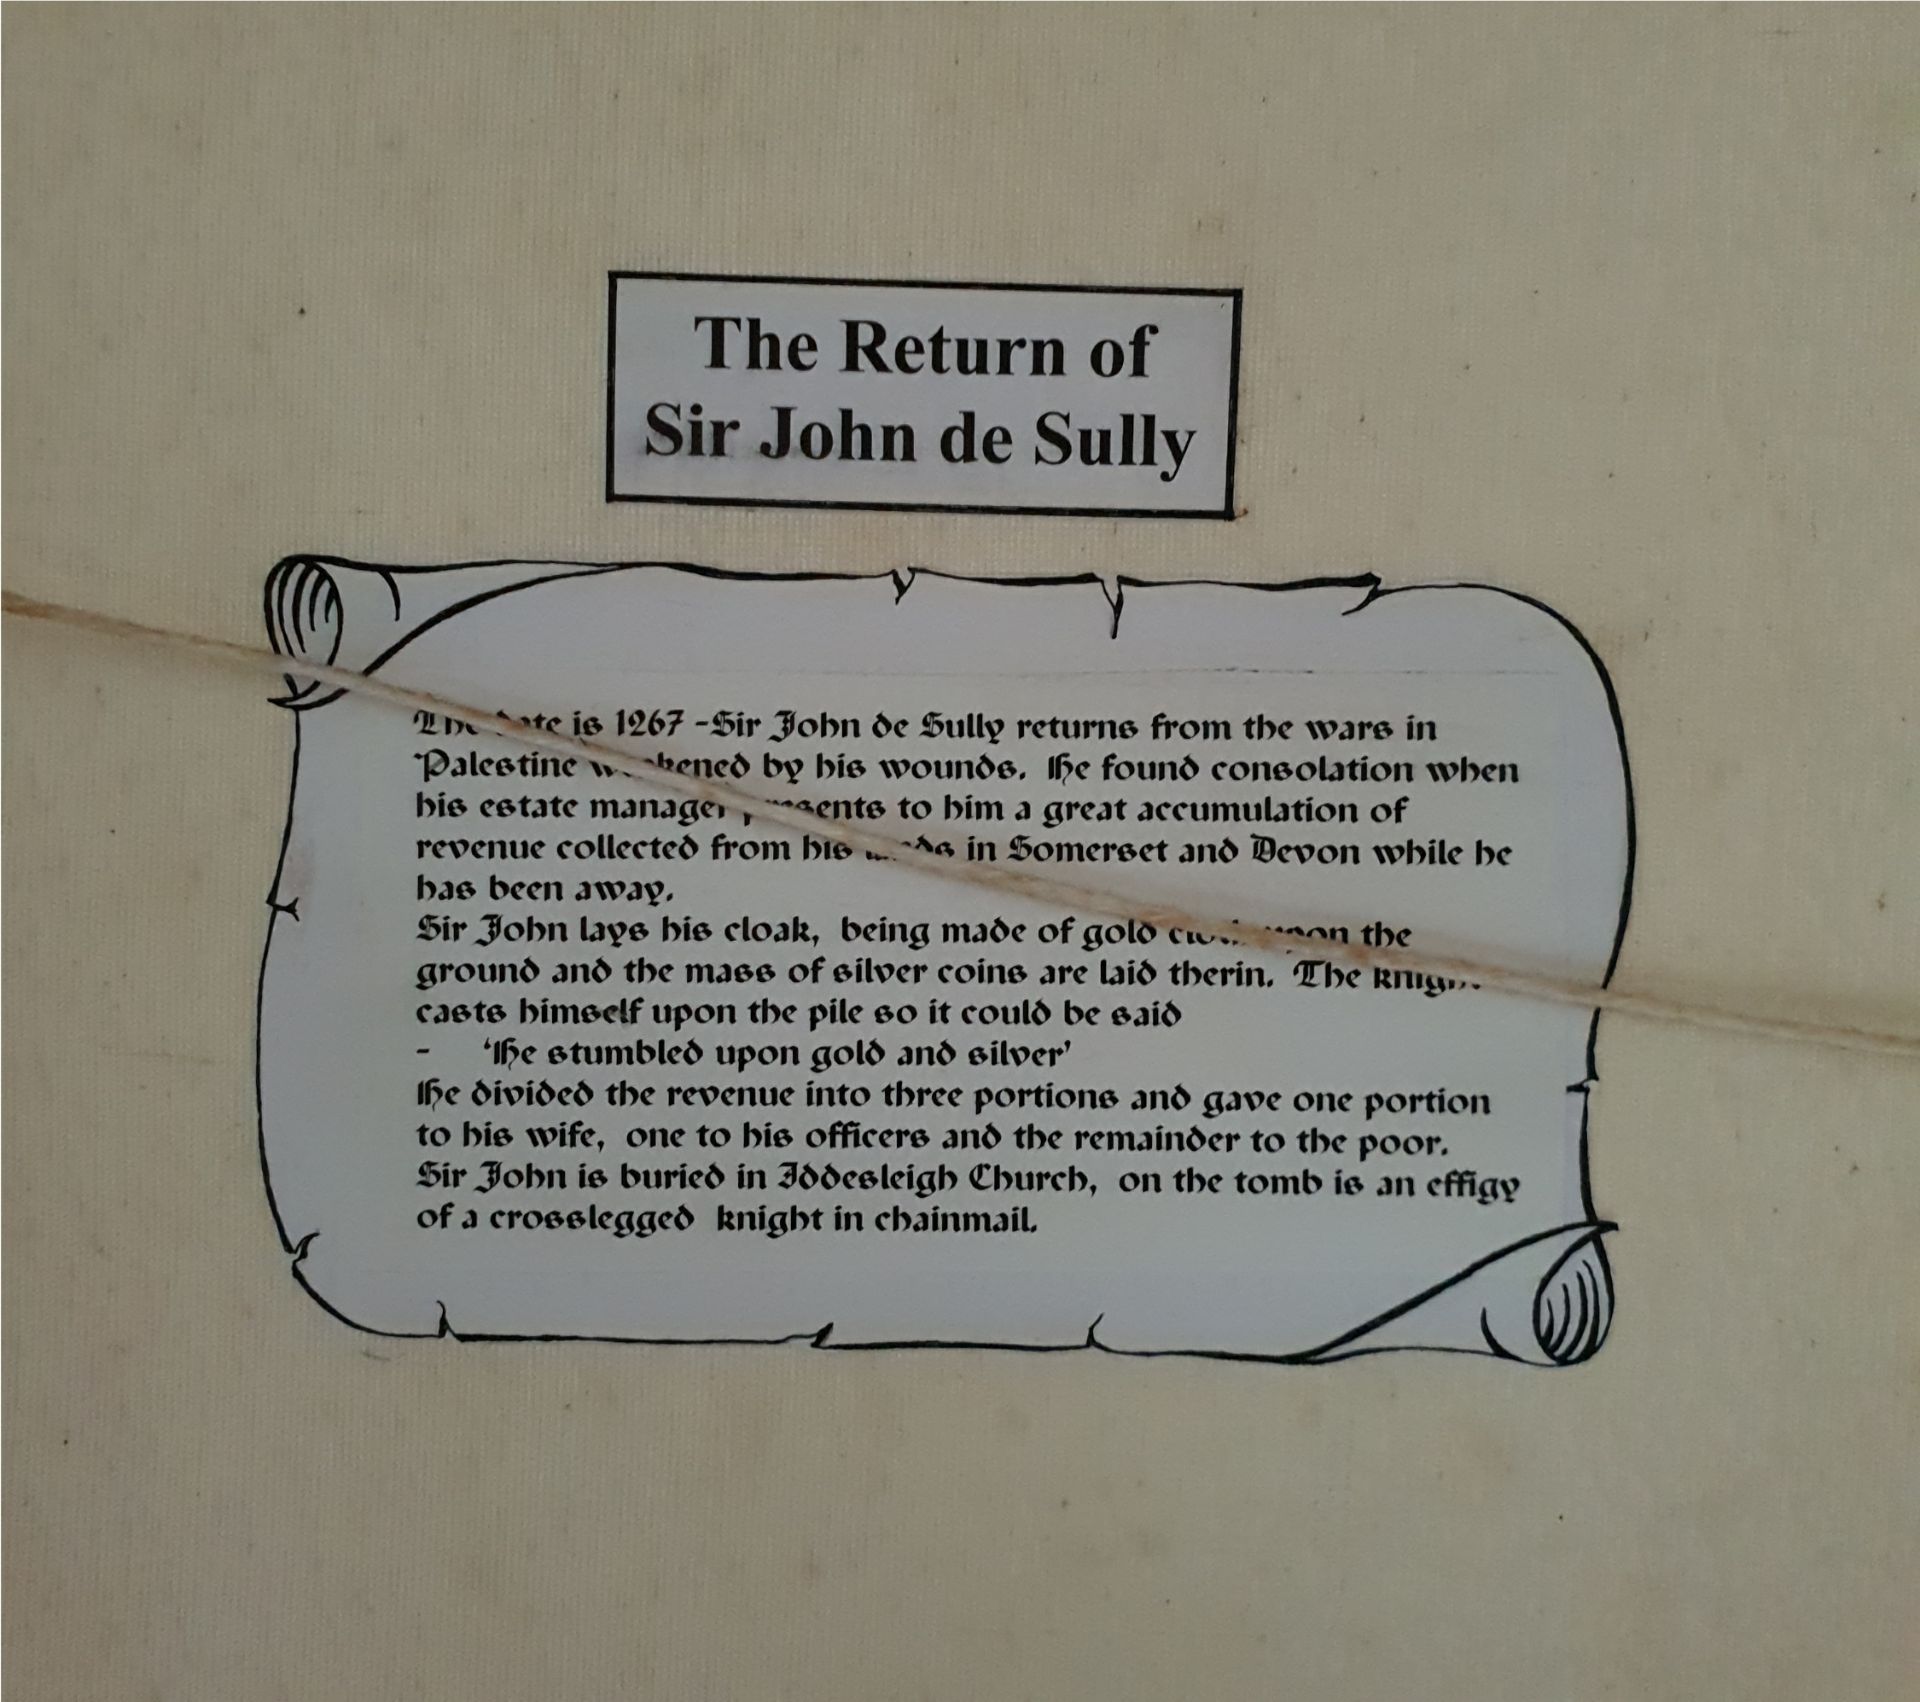 The Return of
Sir John de Sully
The date is 1267 -Sir John de Sully returns from the wars in
Palestine weakened by his wounds. He found consolation when
his estate manager presents to him a great accumulation of
revenue collected from his lands in Somerset and Devon while he
has been away.
Sir John lays his cloak, being made of gold cloth upon the
ground and the mass of silver coins are laid therin. The knight
casts himself upon the pile so it could be said
- 'He stumbled upon gold and silver'
He divided the revenue into three portions and gave one portion
to his wife, one to his officers and the remainder to the poor.
Sir John is buried in Iddesleigh Church, on the tomb is an effigy
of a crosslegged knight in chainmail.